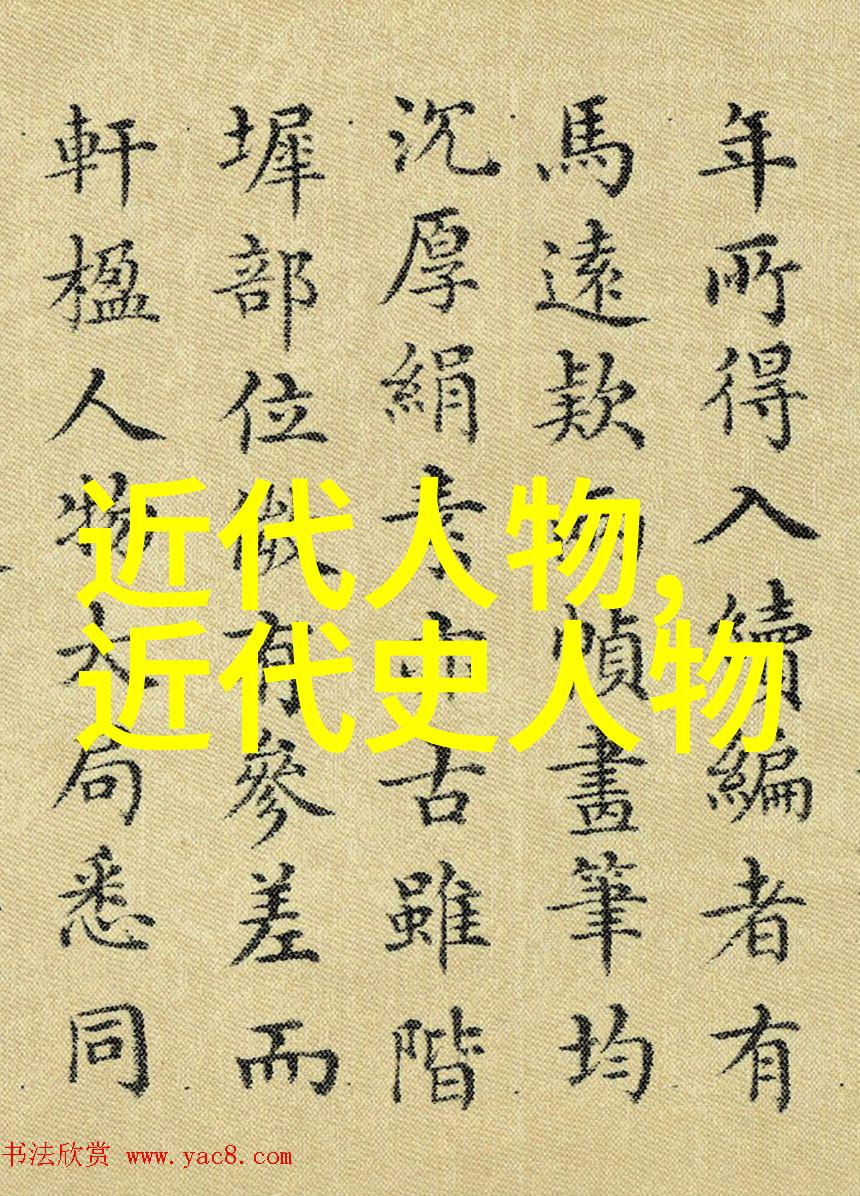 年所得入續編者有
馬遠款兩幀畫筆均
沉厚絹素古雖階
墀部位微有參差而
軒楹人物大局悉同
近代人物,
近代史人物
书法欣赏 www.yac8.com